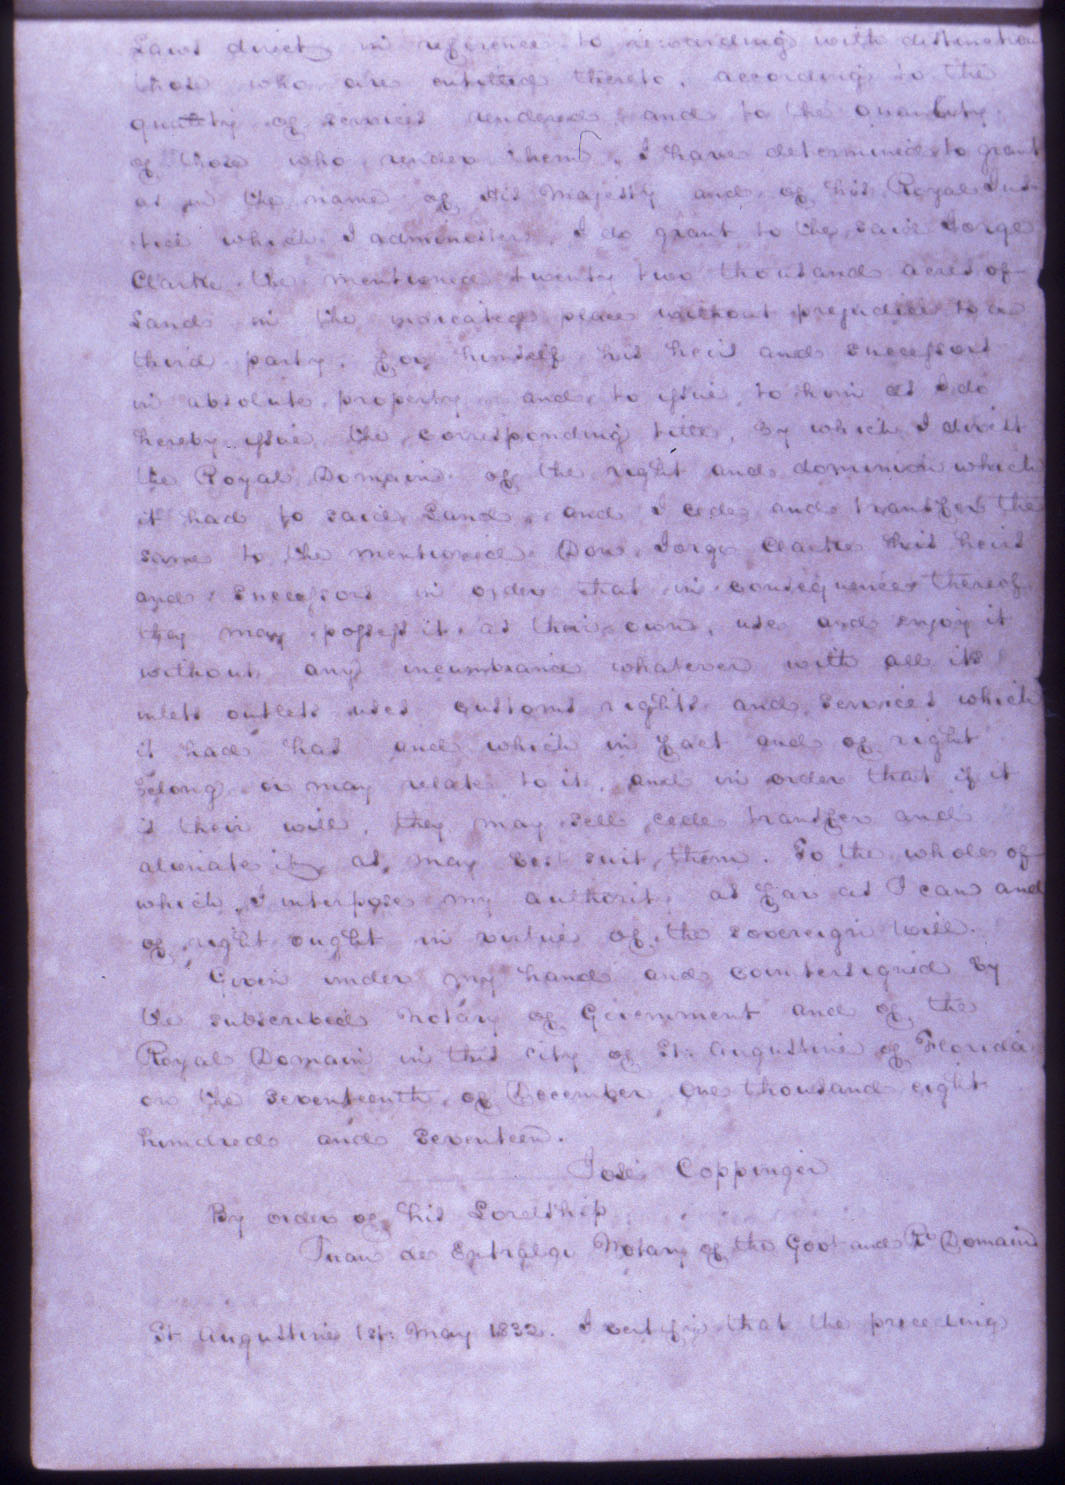 Laws direct in reference to rewarding with distinction
those who are entitled thereto, according to the
quality of services rendered and to the quantity
of those who render them, I have determined to grant
as in the name of His Majesty and of his Royal Jus-
tice which I administer, I do grant to the said Jorge
Clarke the mentioned twenty two thousand acres of
Land in the indicated place without prejudice to a
third party, for himself his heirs and successors
in absolute property and to issue to him as I do
hereby issue the corresponding title, by which I divest
the Royal Domain of the right and dominion which
it had to said Land, and I cede and transfer the
same to the mentioned Don Jorge Clarke his heirs
and successors in order that in consequence thereof
they may possess it as their own, use and enjoy it
without any incumbrance whatever with all its
inlets outlets uses customs rights and services which
it had has and which in fact and of right
belong or may relate to it, and in order that if it
is their will, they may sell cede transfer and
alienate it as may best suit them. To the whole of
which I interpose my authority as far as I can and
of right ought in virtue of the sovereign will.
Given under my hand and countersigned by
the subscribed Notary of Government and of the
Royal Domain in this city of St. Augustine of Florida
on the seventeenth of December One thousand eight
hundred and seventeen.
José Coppinger
By order of his Lordship
Juan de Entralgo Notary of the Govt and Rl Domain
St Augustine 1st: May 1832. I certify that the preceding